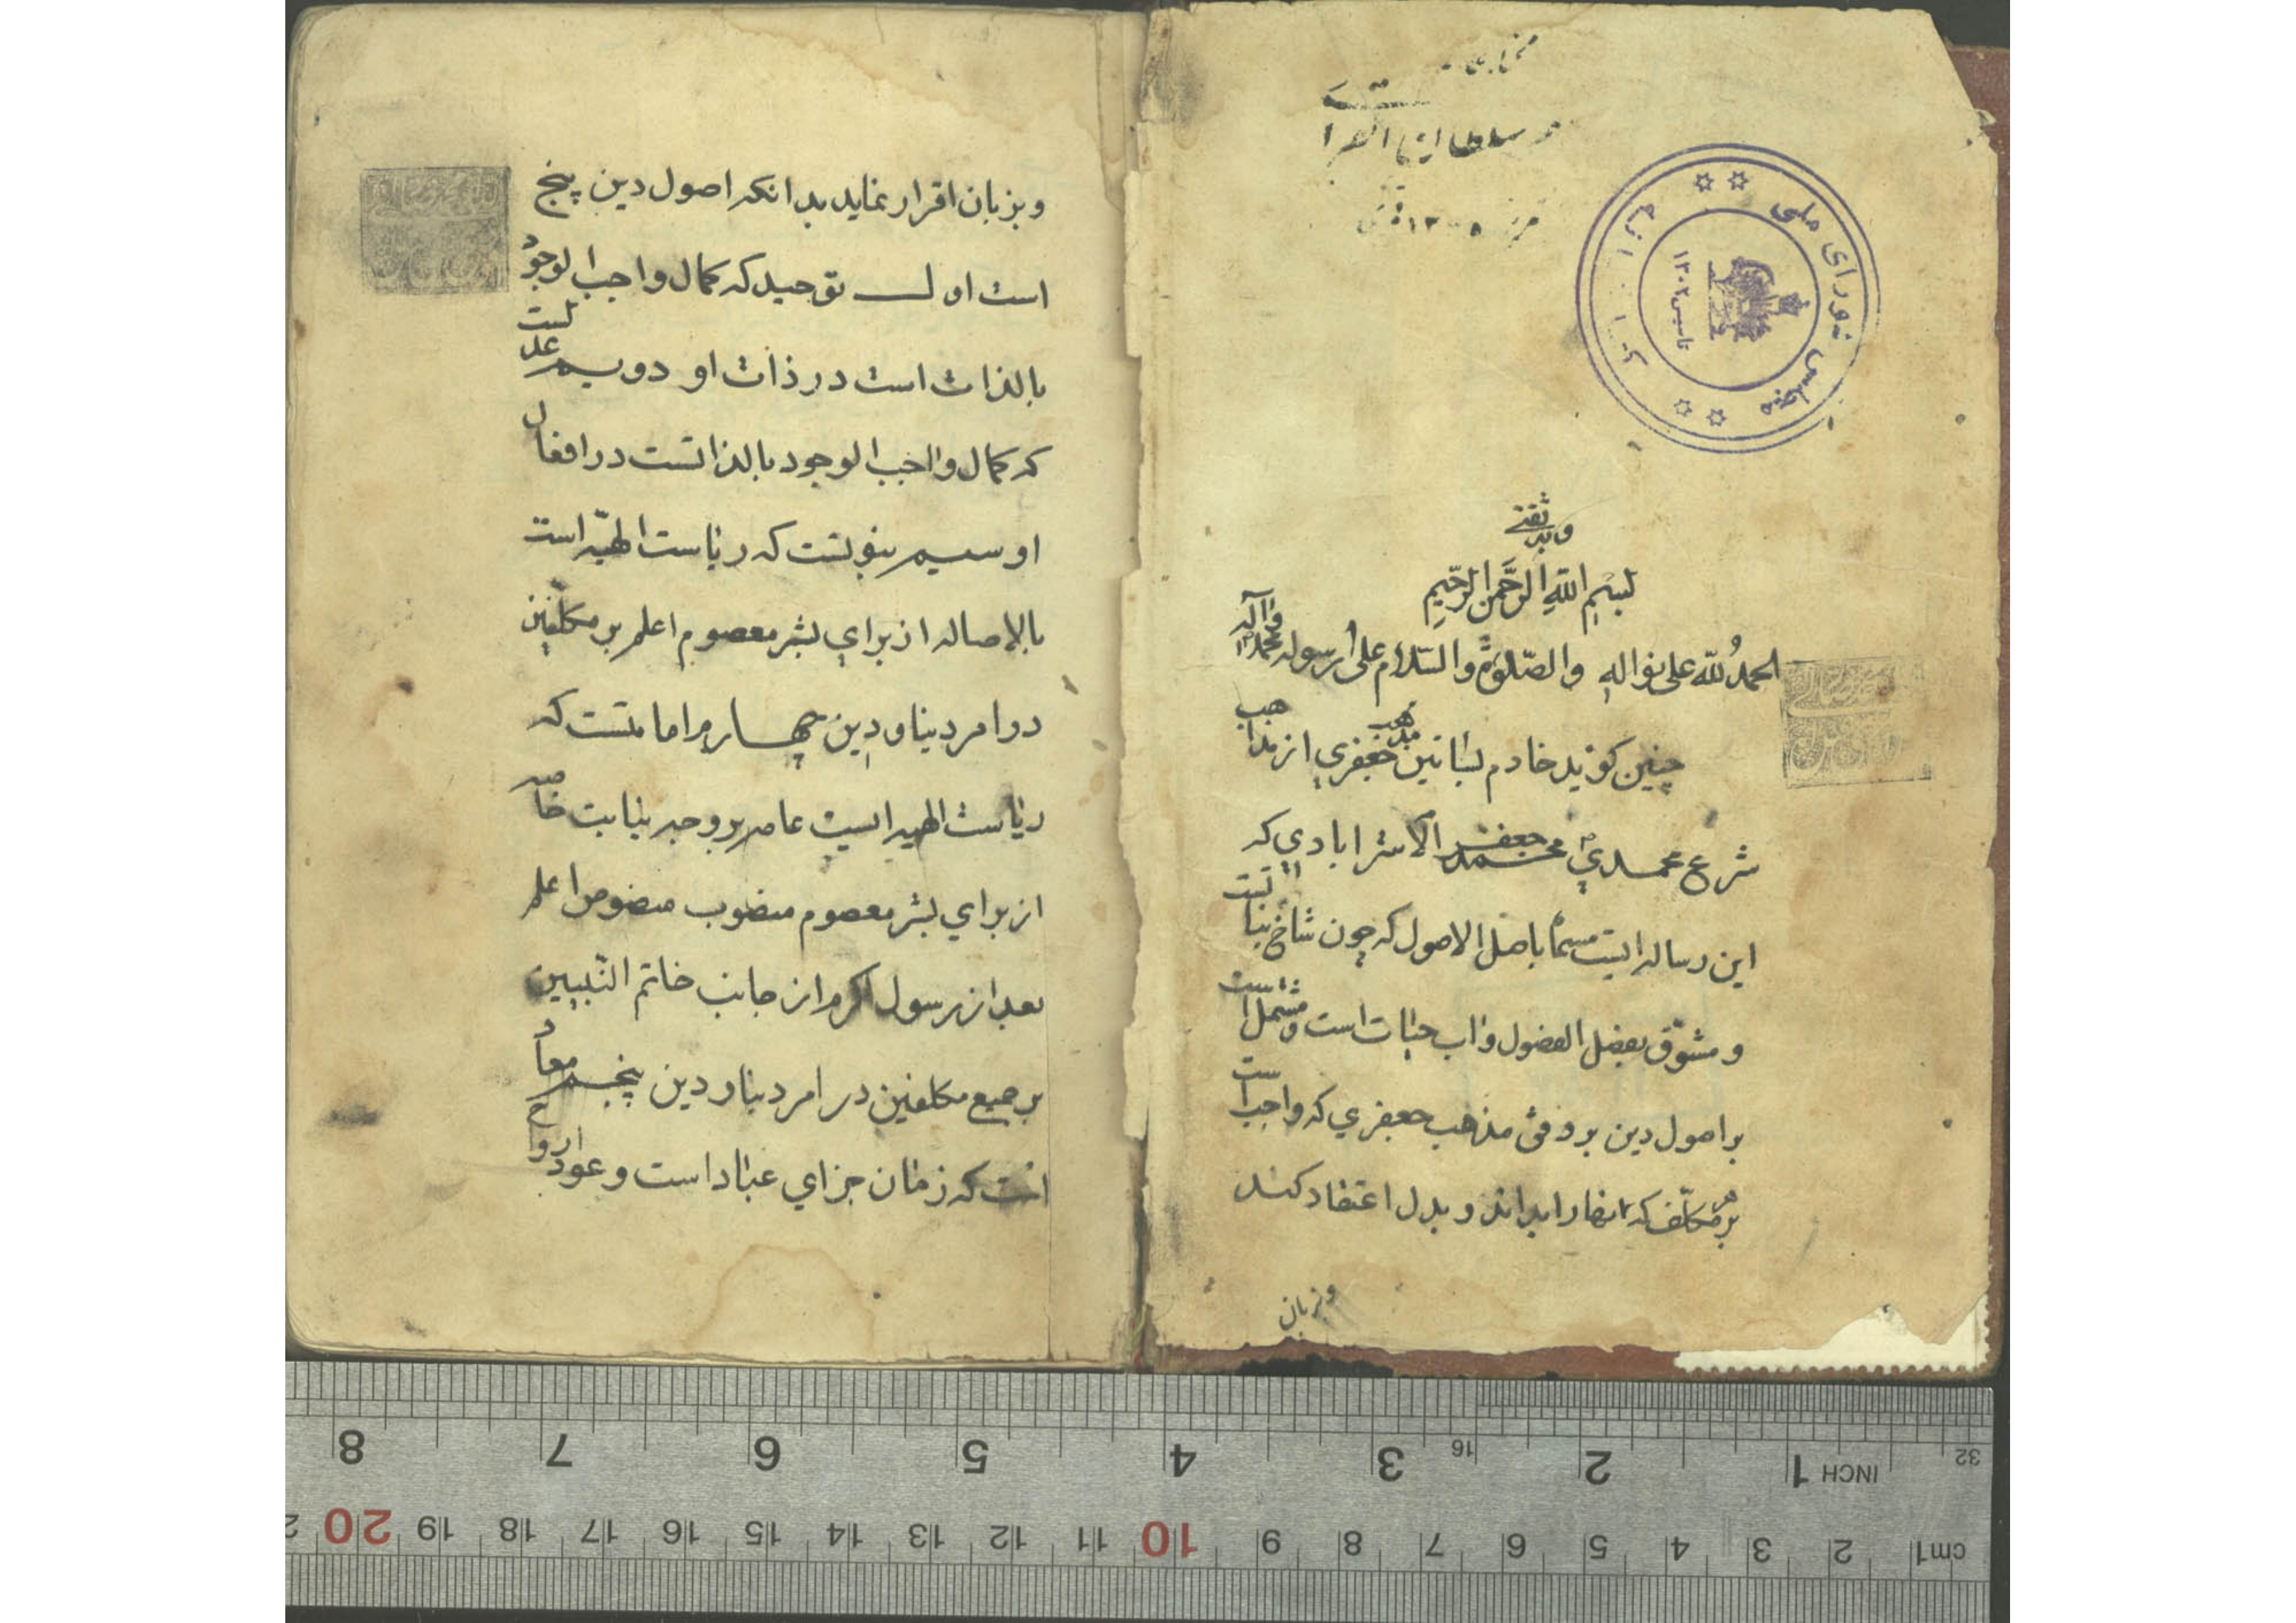 و سلطانیا الفقرا
مجلس شورای ملی
کتابخانه
تاسیس ۱۳۰۲
وبه ثقتی
بسم الله الرحمن الرحیم
الحمد لله علی نواله والصلوة والسلام علی رسوله محمد وآله
چنین کوید خادم بساتین مذهب جعفری از مذاهب
شرع محمدی محمد جعفر الاسترابادی که
این رساله ایست مسما باصل الاصول که چون شاخ نباتست
و مشوّق بفضل الفضول واب حیات است و مشتمل است
بر اصول دین بر وفق مذهب جعفری که واجب است
بر هر مکلّف که انها را بداند و بدل اعتقاد کند
وبزبان
وبزبان اقرار نماید بدانکه اصول دین پنج
است اول توحید که کمال واجب الوجود
بالذات است در ذات او دویم عدلست
که کمال واجب الوجود بالذاتست در افعال
او سیم نبوتست که ریاست الهیّه است
بالاصاله از برای بشر معصوم اعلم بر مکلّفین
در امر دنیا و دین چهارم امامتست که
ریاست الهیه ایست عامه بر وجه نیابت خاصه
از برای بشر معصوم منصوب منصوص اعلم
بعد از رسول اکرم از جانب خاتم النّبیین
بر جمیع مکلفین در امر دنیا و دین پنجم معاد
است که زمان جزای عباد است و عود ارواح
8 7 6 5 4 3 16 2 1 INCH 32
20 19 18 17 16 15 14 13 12 11 10 9 8 7 6 5 4 3 2 1 cm